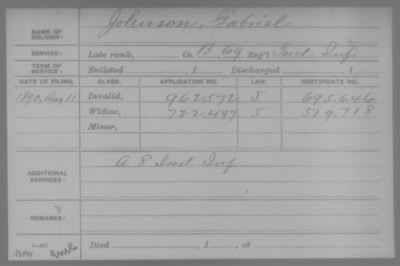 NAME OF SOLDIER: Johnson, Gabriel
SERVICE: Late rank, Co. B, 69 Reg't Ind. Inf.
TERM OF SERVICE: Enlisted , 1 Discharged , 1
DATE OF FILING. CLASS. APPLICATION NO. LAW. CERTIFICATE NO.
1890, Aug 11 Invalid, 962.572 J 695.646
Widow, 722.497 J 519.718
Minor,
ADDITIONAL SERVICES: A 8 Ind Inf
REMARKS:
Died , 1 , at